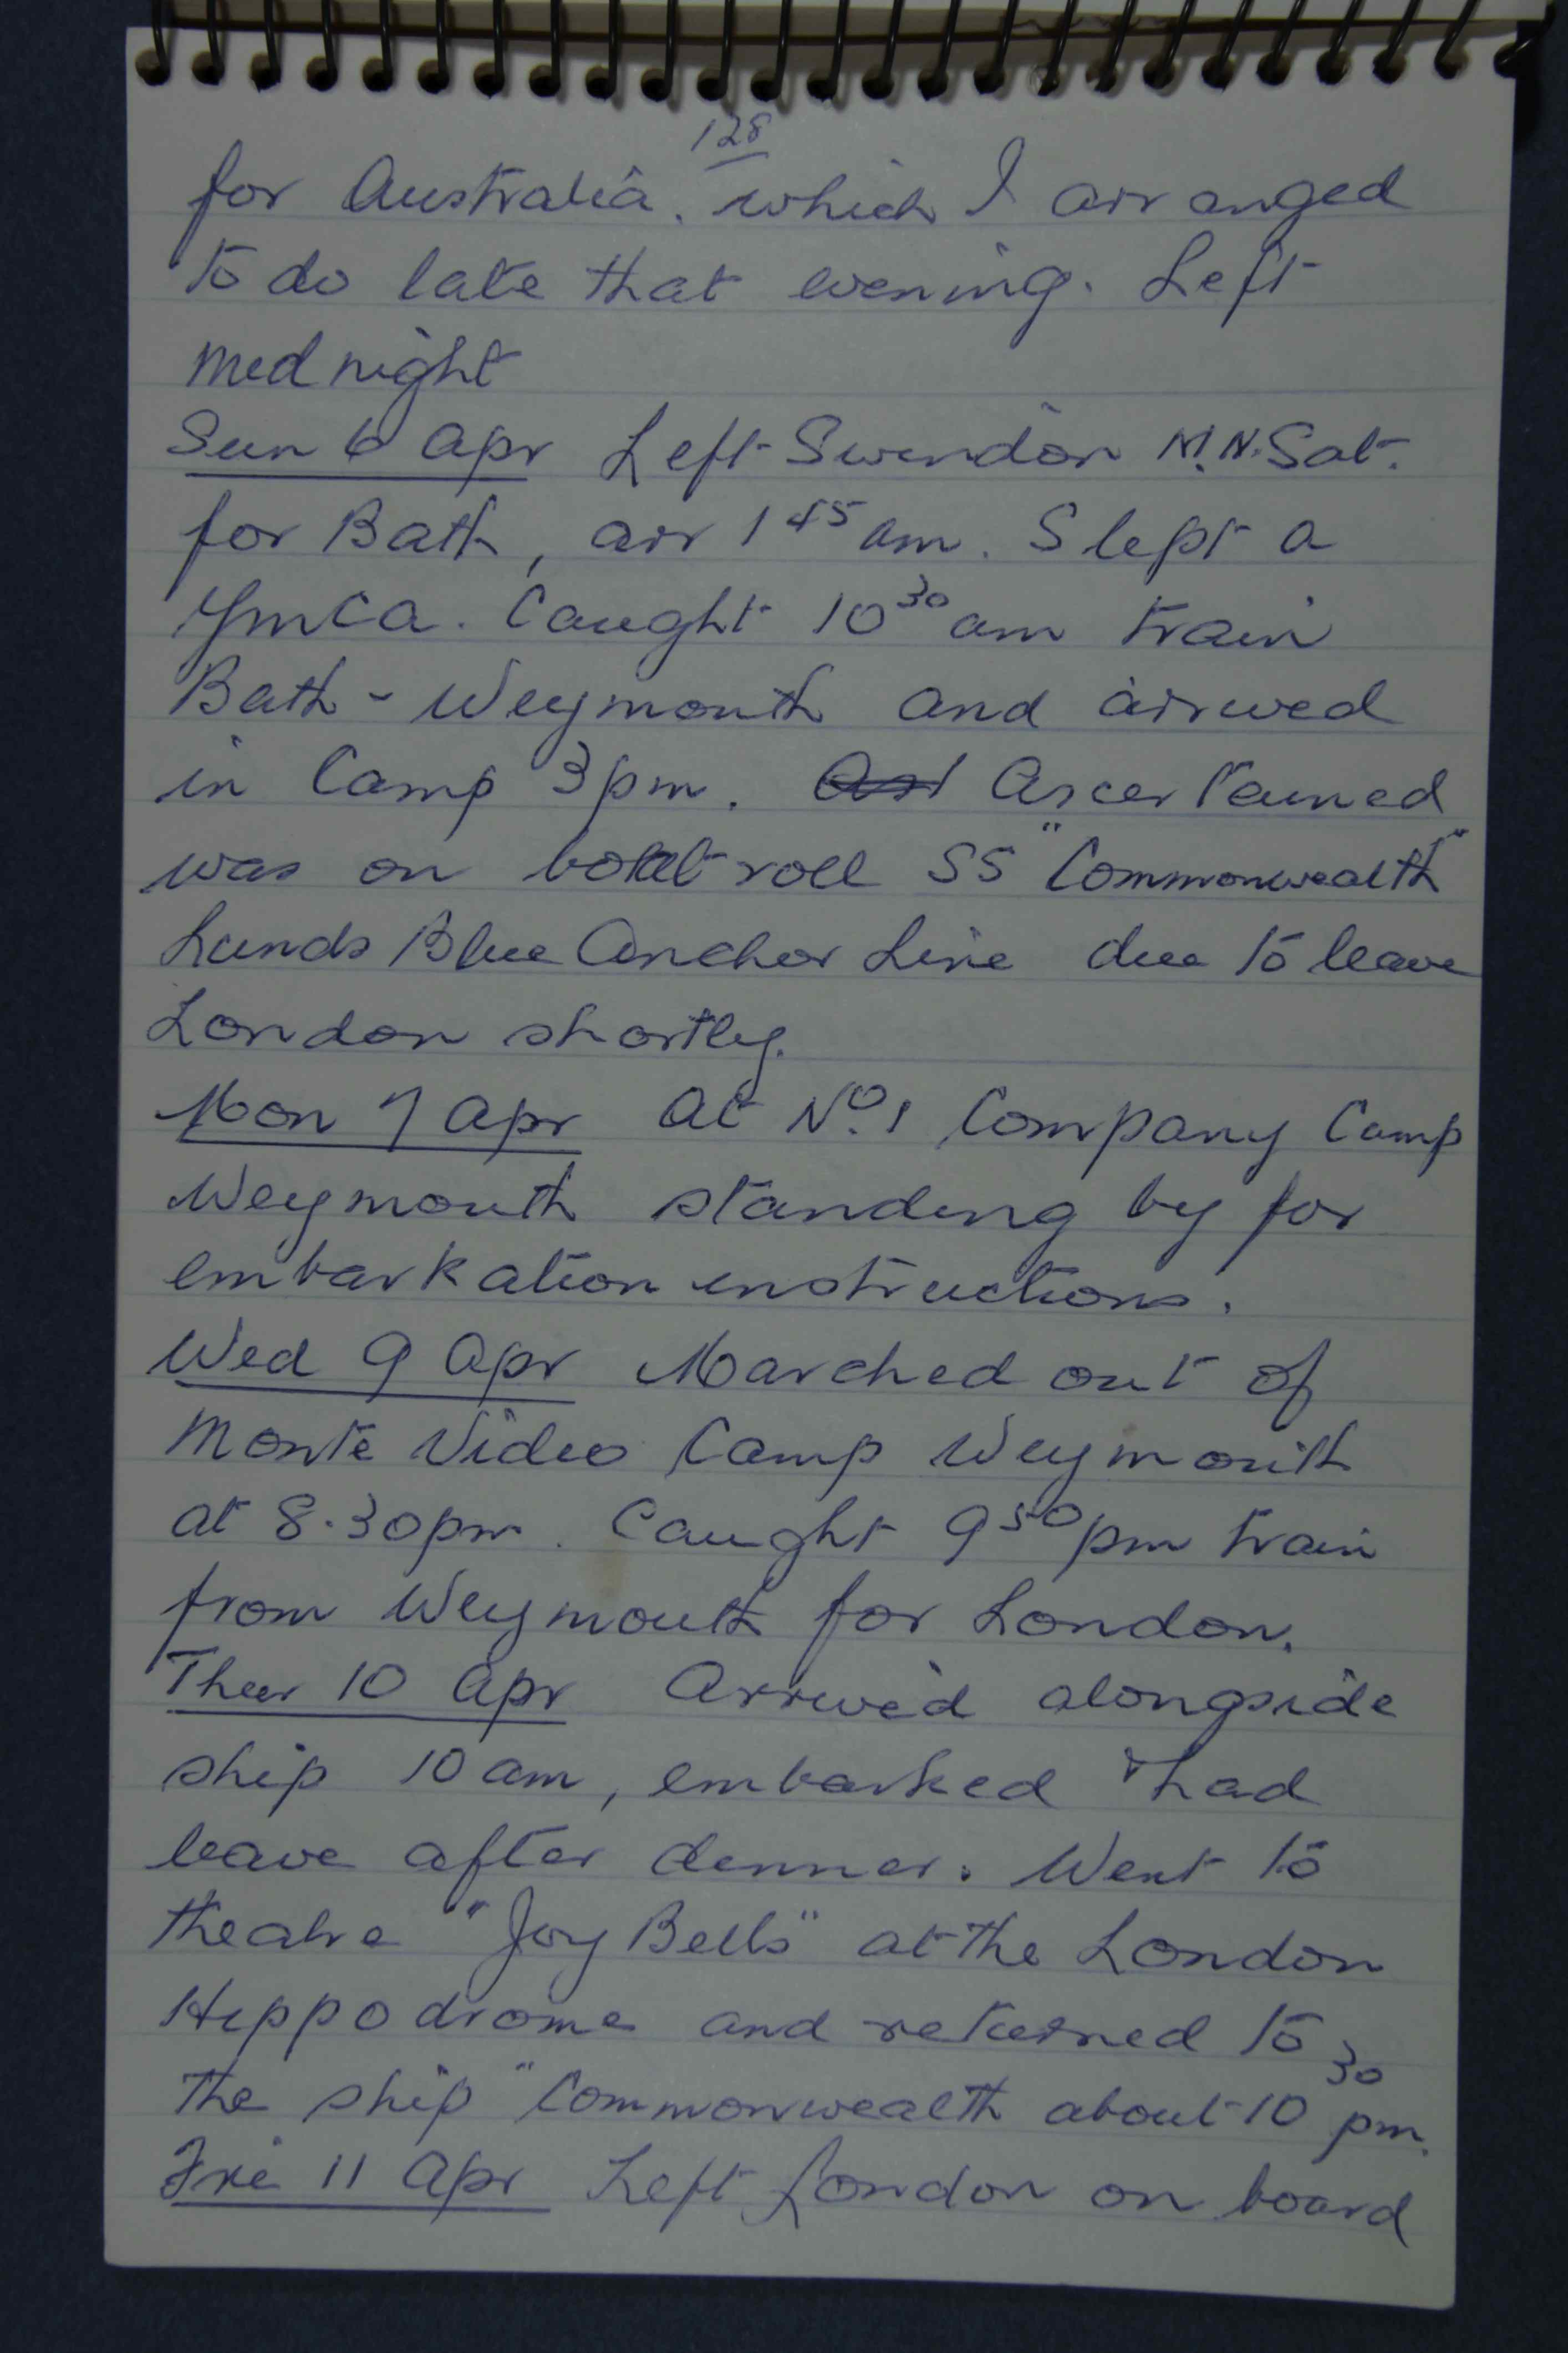 128
for Australia. which I arranged
to do late that evening. Left
mednight
Sun 6 Apr Left Swindon M.N. Sat.
for Bath, arr 1 45 am. Slept a
YMCA. Caught 10 30 am train
Bath - Weymouth and arrived
in Camp 3 pm. Ascertained
was on boat roll SS "Commonwealth"
Lunds Blue Anchor Line due to leave
London shortly.
Mon 7 Apr At No. 1 Company Camp
Weymouth standing by for
embarkation instructions.
Wed 9 Apr Marched out of
Monte Video Camp Weymouth
at 8.30pm. Caught 9 50 pm train
from Weymouth for London.
Thur 10 Apr Arrived alongside
ship 10 am, embarked & had
leave after dinner. Went to
theatre "Joy Bells" at the London
Hippodrome and returned to
the ship "Commonwealth about 10 30 pm.
Fri 11 Apr Left London on board